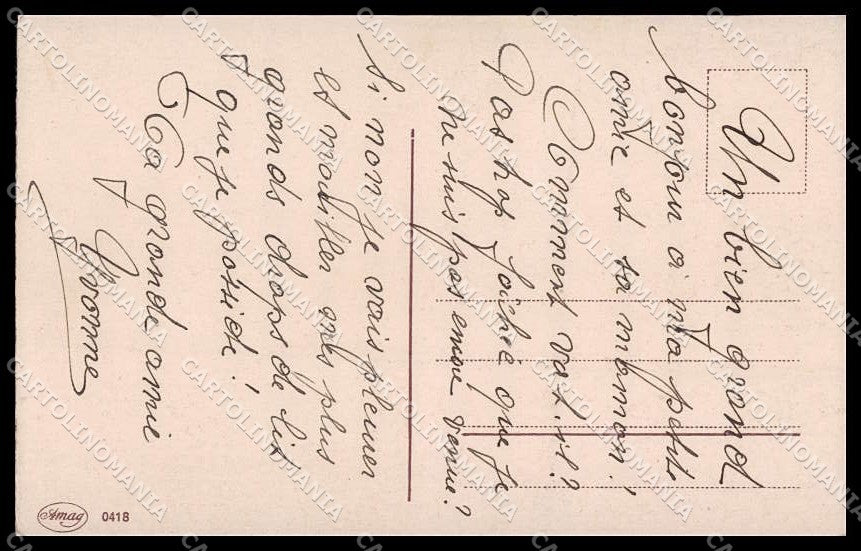 Un bien grand
bonjour à ma petite
amie et sa maman!
Comment vat-il?
Pas trop fachée que je
ne suis pas encore venue?
Si non je vais pleurer
et mouiller mes plus
grands draps de lit
que je possède!
Ta grande amie
Yvonne
Amag 0418
CARTOLINOMANIA